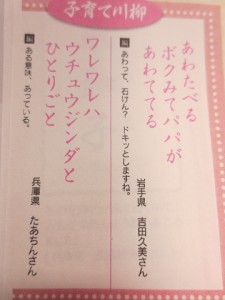 子育て川柳
あわたべる
ボクみてパパが
あわててる
岩手県　吉田久美さん
編 あわって、石けん?　ドキッとしますね。
ワレワレハ
ウチュウジンダと
ひとりごと
兵庫県　たあちんさん
編 ある意味、あっている。